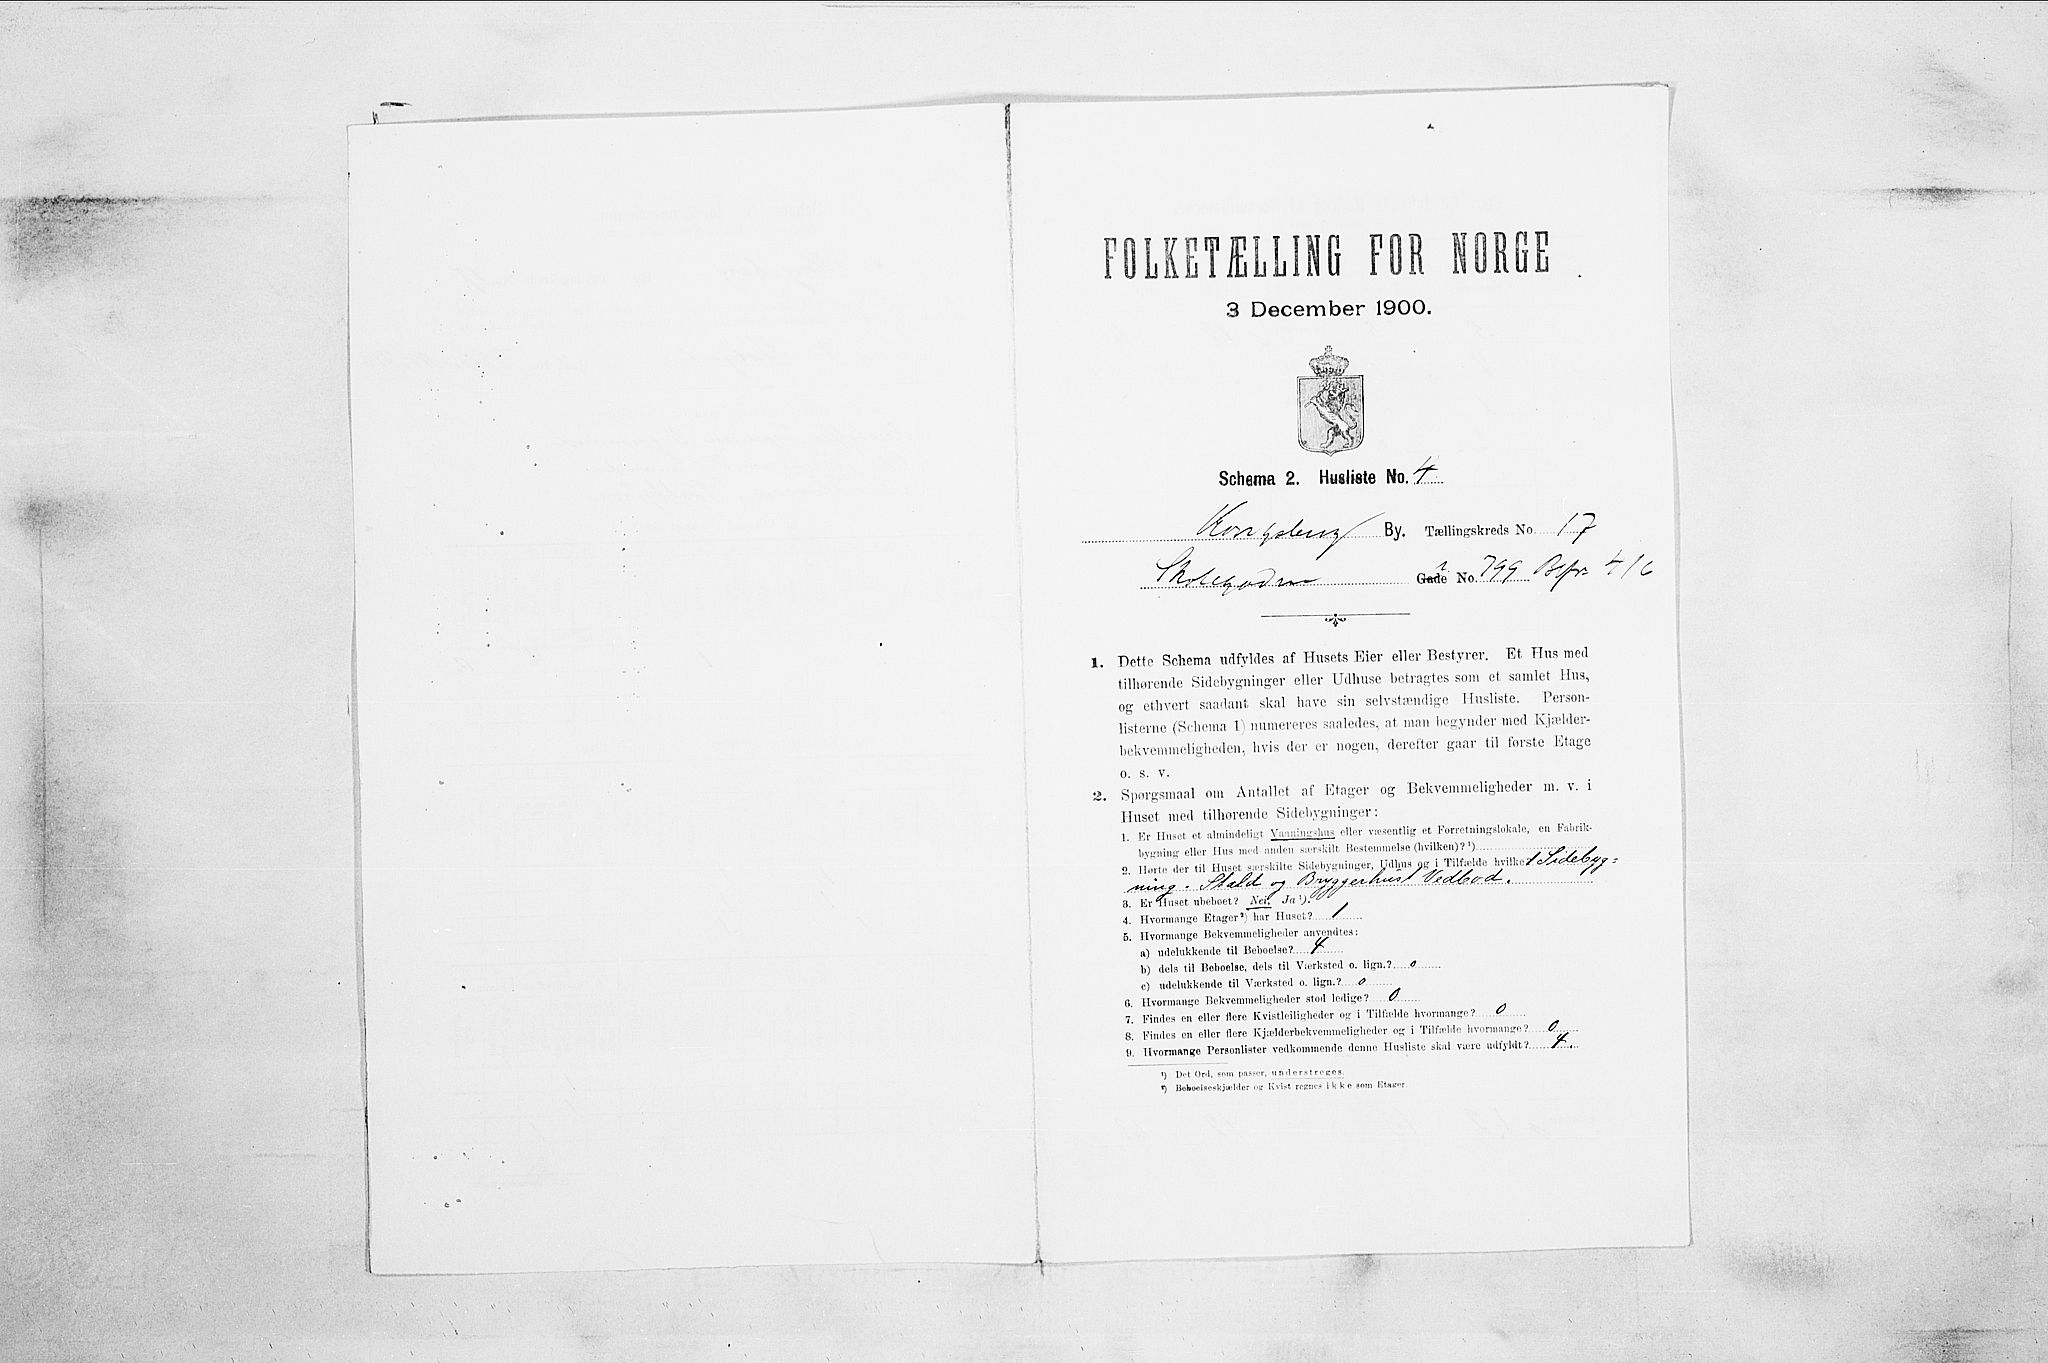 FOLKETÆLLING FOR NORGE
3 December 1900.
Schema 2. Husliste No. 4
Kongsberg By. Tællingskreds No. 17
Skolegaden Gade No. 799 416
1. Dette Schema udfyldes af Husets Eier eller Bestyrer. Et Hus med
tilhørende Sidebygninger eller Udhuse betragtes som et samlet Hus,
og ethvert saadant skal have sin selvstændige Husliste. Person-
listerne (Schema 1) numereres saaledes, at man begynder med Kjælder-
bekvemmeligheden, hvis der er nogen, derefter gaar til første Etage
o. s. v.
2. Spørgsmaal om Antallet af Etager og Bekvemmeligheder m. v. i
Huset med tilhørende Sidebygninger:
1. Er Huset et almindeligt Vaaningshus eller væsentlig et Forretningslokale, en Fabrik-
bygning eller Hus med anden særskilt Bestemmelse (hvilken)? ¹)
2. Hørte der til Huset særskilte Sidebygninger, Udhus og i Tilfælde hvilke? 1 Sidebyg=
ning. Stald og Bryggerhus 1 Vedbod.
3. Er Huset ubeboet? Nei. Ja ¹).
4. Hvormange Etager ²) har Huset? 1
5. Hvormange Bekvemmeligheder anvendtes:
a) udelukkende til Beboelse? 4
b) dels til Beboelse, dels til Værksted o. lign.? 0
c) udelukkende til Værksted o. lign.? 0
6. Hvormange Bekvemmeligheder stod ledige? 0
7. Findes en eller flere Kvistleiligheder og i Tilfælde hvormange? 0
8. Findes en eller flere Kjælderbekvemmeligheder og i Tilfælde hvormange? 0
9. Hvormange Personlister vedkommende denne Husliste skal være udfyldt? 4.
¹) Det Ord, som passer, understreges.
²) Beboelseskjælder og Kvist regnes ikke som Etager.